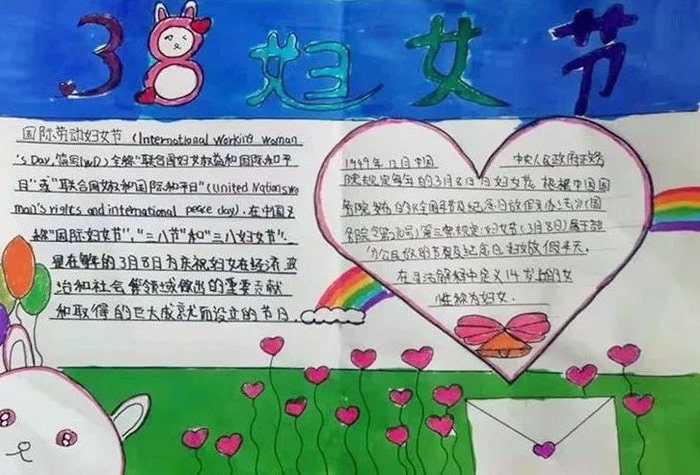 38妇女节
国际劳动妇女节 (International Working Woman
's Day, 简写IWD) 全称"联合国妇女权益和国际和平
日"或"联合国女权和国际和平日"(United Nations wo
man's rights and international peace day). 在中国又
称"国际妇女节", "三八节"和"三八妇女节".
是在每年的3月8日为庆祝妇女在经济 政
治和社会等领域做出的重要贡献
和取得的巨大成就而设立的节日.
1949年12月中国 中央人民政府政务
院规定每年的3月8日为妇女节. 根据中国国
务院 的 全国年节及纪念日放假办法 (国
务院令第 号) 第三条规定: 妇女节 (3月8日) 属于部
分公民放假的节日及纪念日 妇女放假半天.
在 法解释中定义14岁以上的女
性称为妇女.